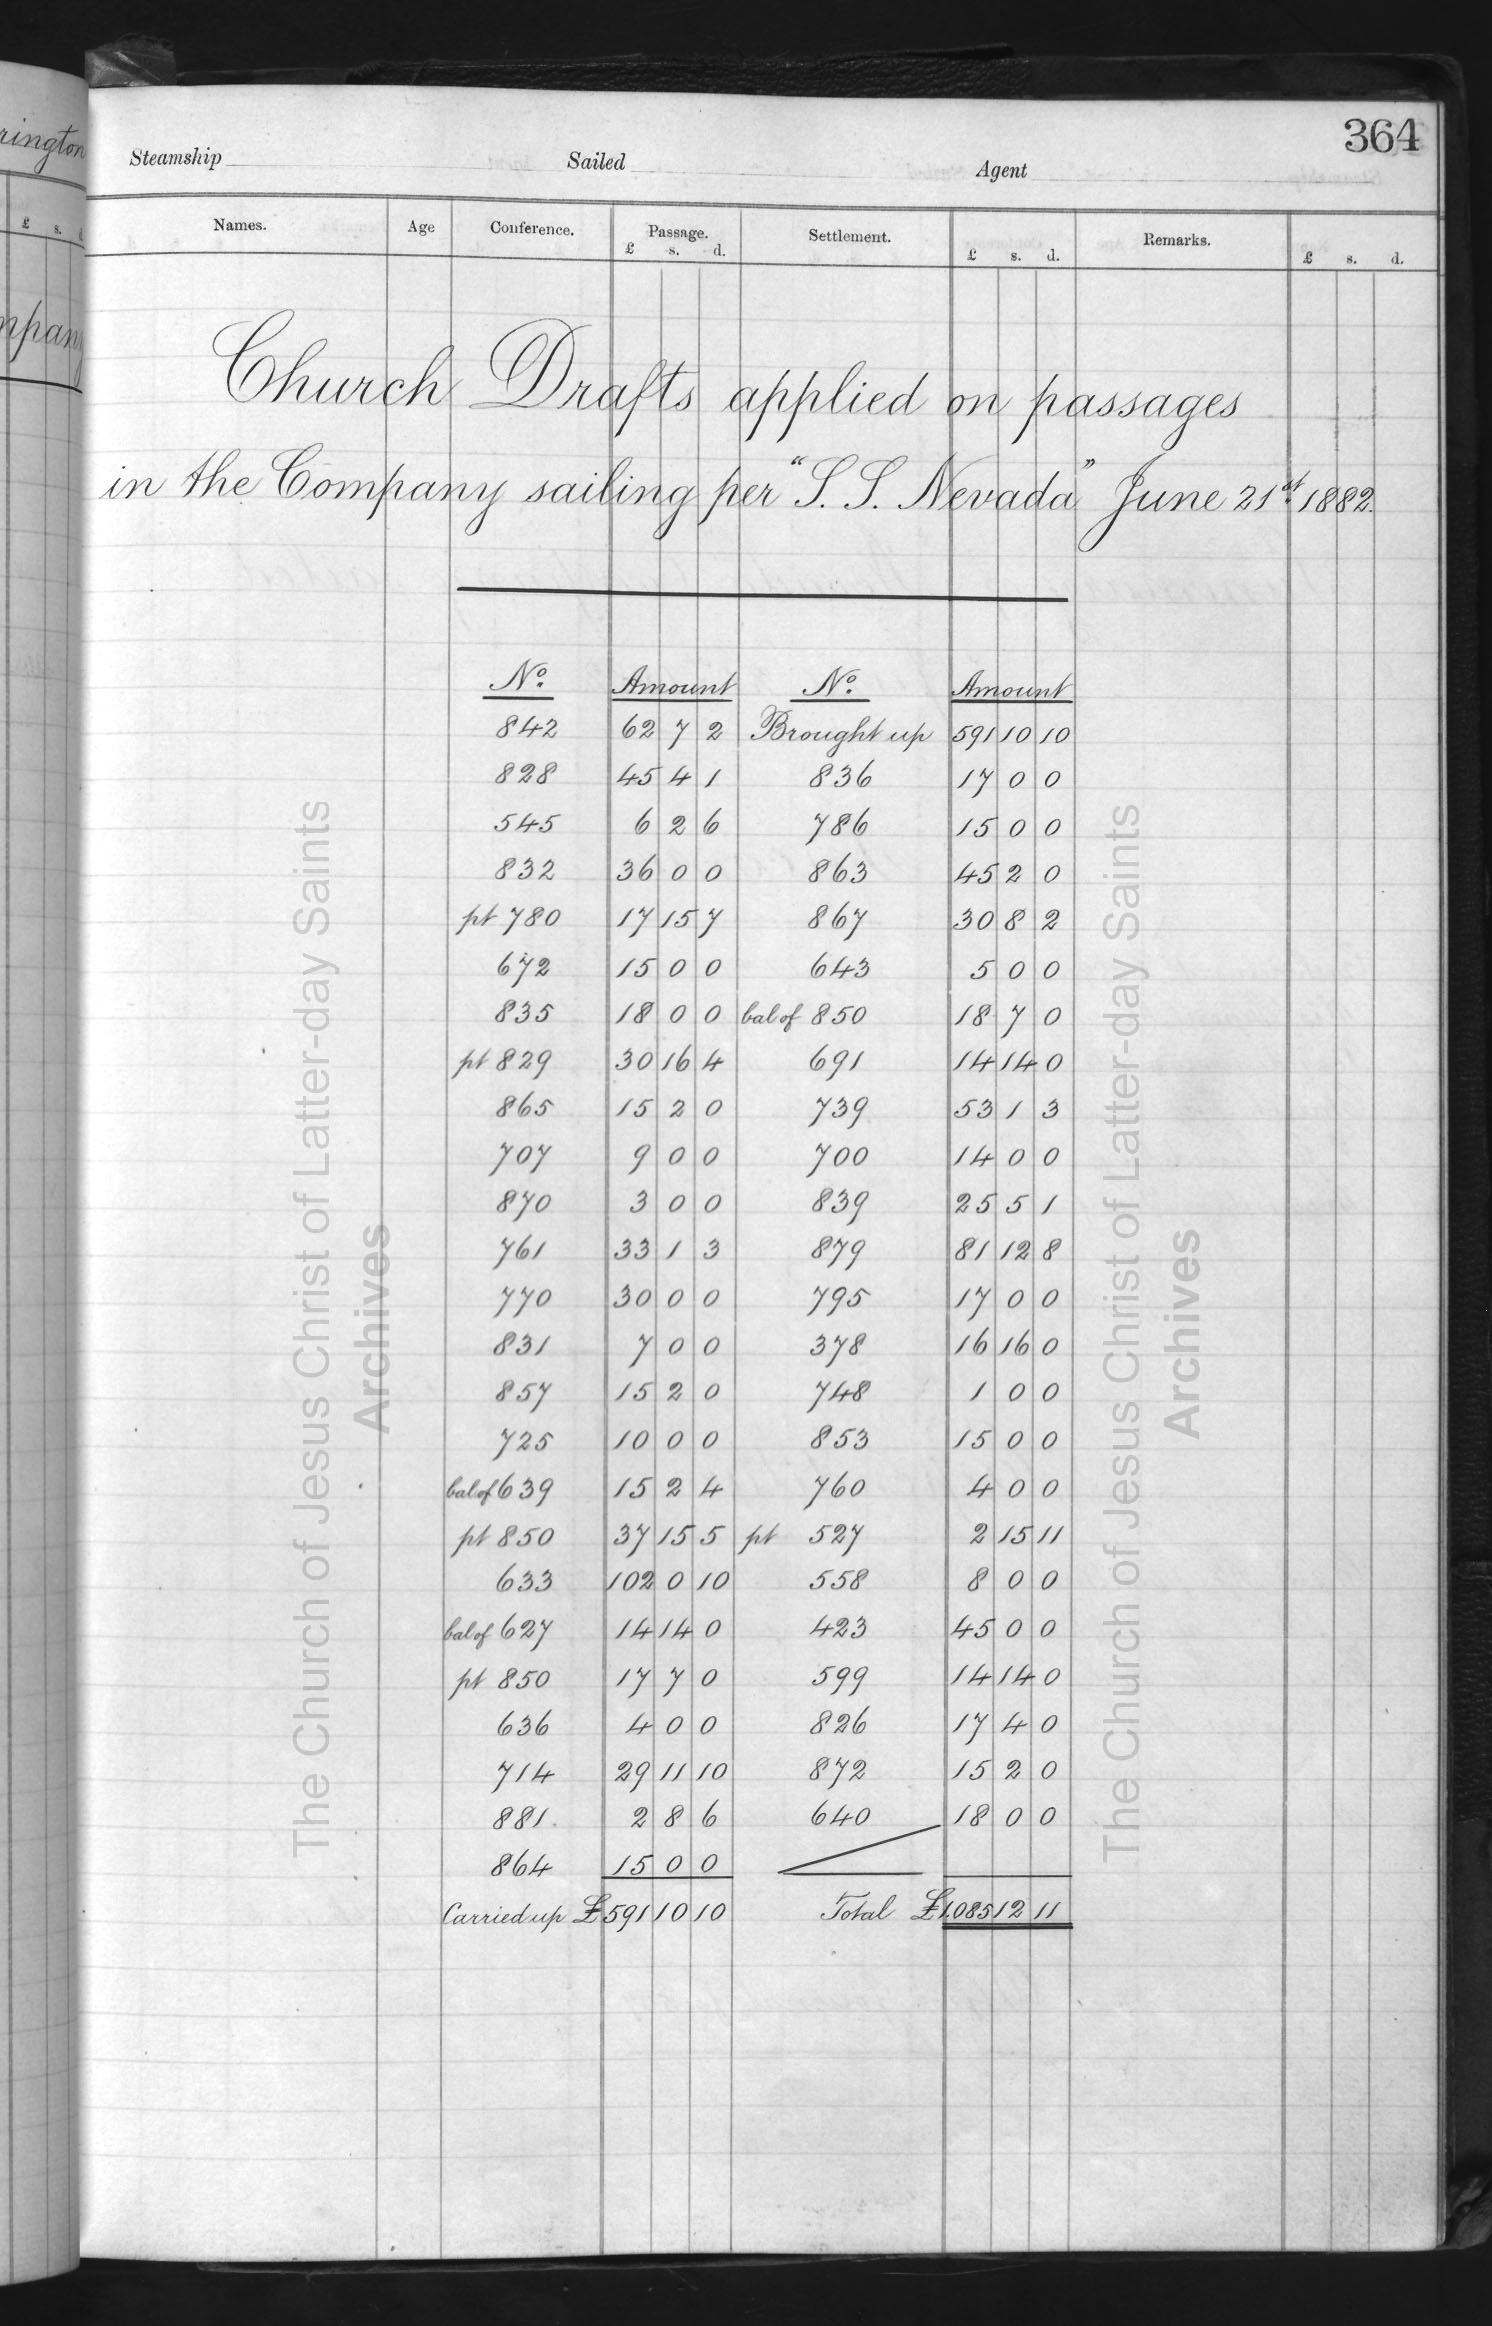 rington
£ s. d
mpany
364
Steamship Sailed Agent
Names. Age Conference. Passage. Settlement. Remarks.
£ s. d. £ s. d. £ s. d.
Church Drafts applied on passages
in the Company sailing per "S. S. Nevada" June 21st 1882.
No. Amount No. Amount
842 62 7 2 Brought up 591 10 10
828 45 4 1 836 17 0 0
545 6 2 6 786 15 0 0
832 36 0 0 863 45 2 0
pt 780 17 15 7 867 30 8 2
672 15 0 0 643 5 0 0
835 18 0 0 bal of 850 18 7 0
pt 829 30 16 4 691 14 14 0
865 15 2 0 739 53 1 3
707 9 0 0 700 14 0 0
870 3 0 0 839 25 5 1
761 33 1 3 879 81 12 8
770 30 0 0 795 17 0 0
831 7 0 0 378 16 16 0
857 15 2 0 748 1 0 0
725 10 0 0 853 15 0 0
bal of 639 15 2 4 760 4 0 0
pt 850 37 15 5 pt 527 2 15 11
633 102 0 10 558 8 0 0
bal of 627 14 14 0 423 45 0 0
pt 850 17 7 0 599 14 14 0
636 4 0 0 826 17 4 0
714 29 11 10 872 15 2 0
881. 2 8 6 640 18 0 0
864 15 0 0
Carried up £591 10 10 Total £1.085 12 11
The Church of Jesus Christ of Latter-day Saints
Archives
The Church of Jesus Christ of Latter-day Saints
Archives